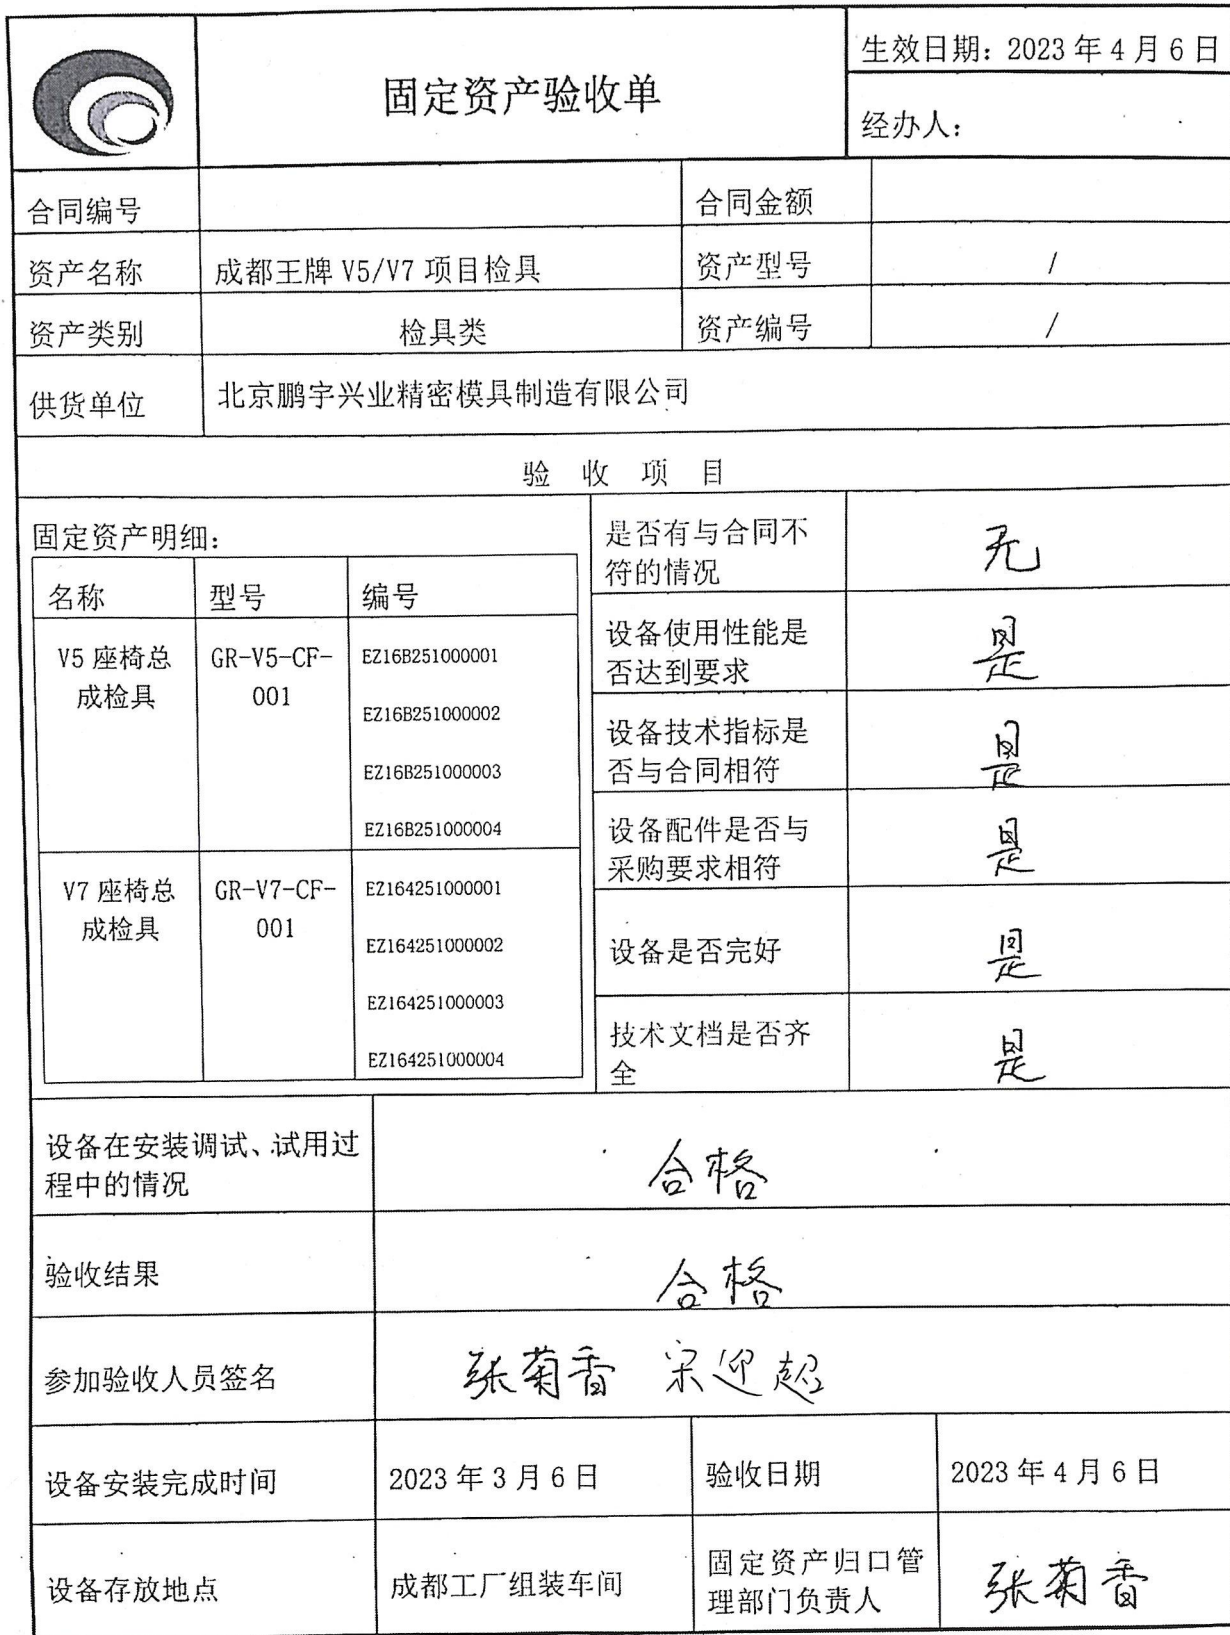 固定资产验收单
生效日期：2023 年 4 月 6 日
经办人：
合同编号
合同金额
资产名称
成都王牌 V5/V7 项目检具
资产型号
/
资产类别
检具类
资产编号
/
供货单位
北京鹏宇兴业精密模具制造有限公司
验 收 项 目
固定资产明细：
名称
型号
编号
V5 座椅总
成检具
GR-V5-CF-
001
EZ16B251000001
EZ16B251000002
EZ16B251000003
EZ16B251000004
V7 座椅总
成检具
GR-V7-CF-
001
EZ164251000001
EZ164251000002
EZ164251000003
EZ164251000004
是否有与合同不
符的情况
无
设备使用性能是
否达到要求
是
设备技术指标是
否与合同相符
是
设备配件是否与
采购要求相符
是
设备是否完好
是
技术文档是否齐
全
是
设备在安装调试、试用过
程中的情况
合格
验收结果
合格
参加验收人员签名
张菊香 宋迎超
设备安装完成时间
2023 年 3 月 6 日
验收日期
2023 年 4 月 6 日
设备存放地点
成都工厂组装车间
固定资产归口管
理部门负责人
张菊香